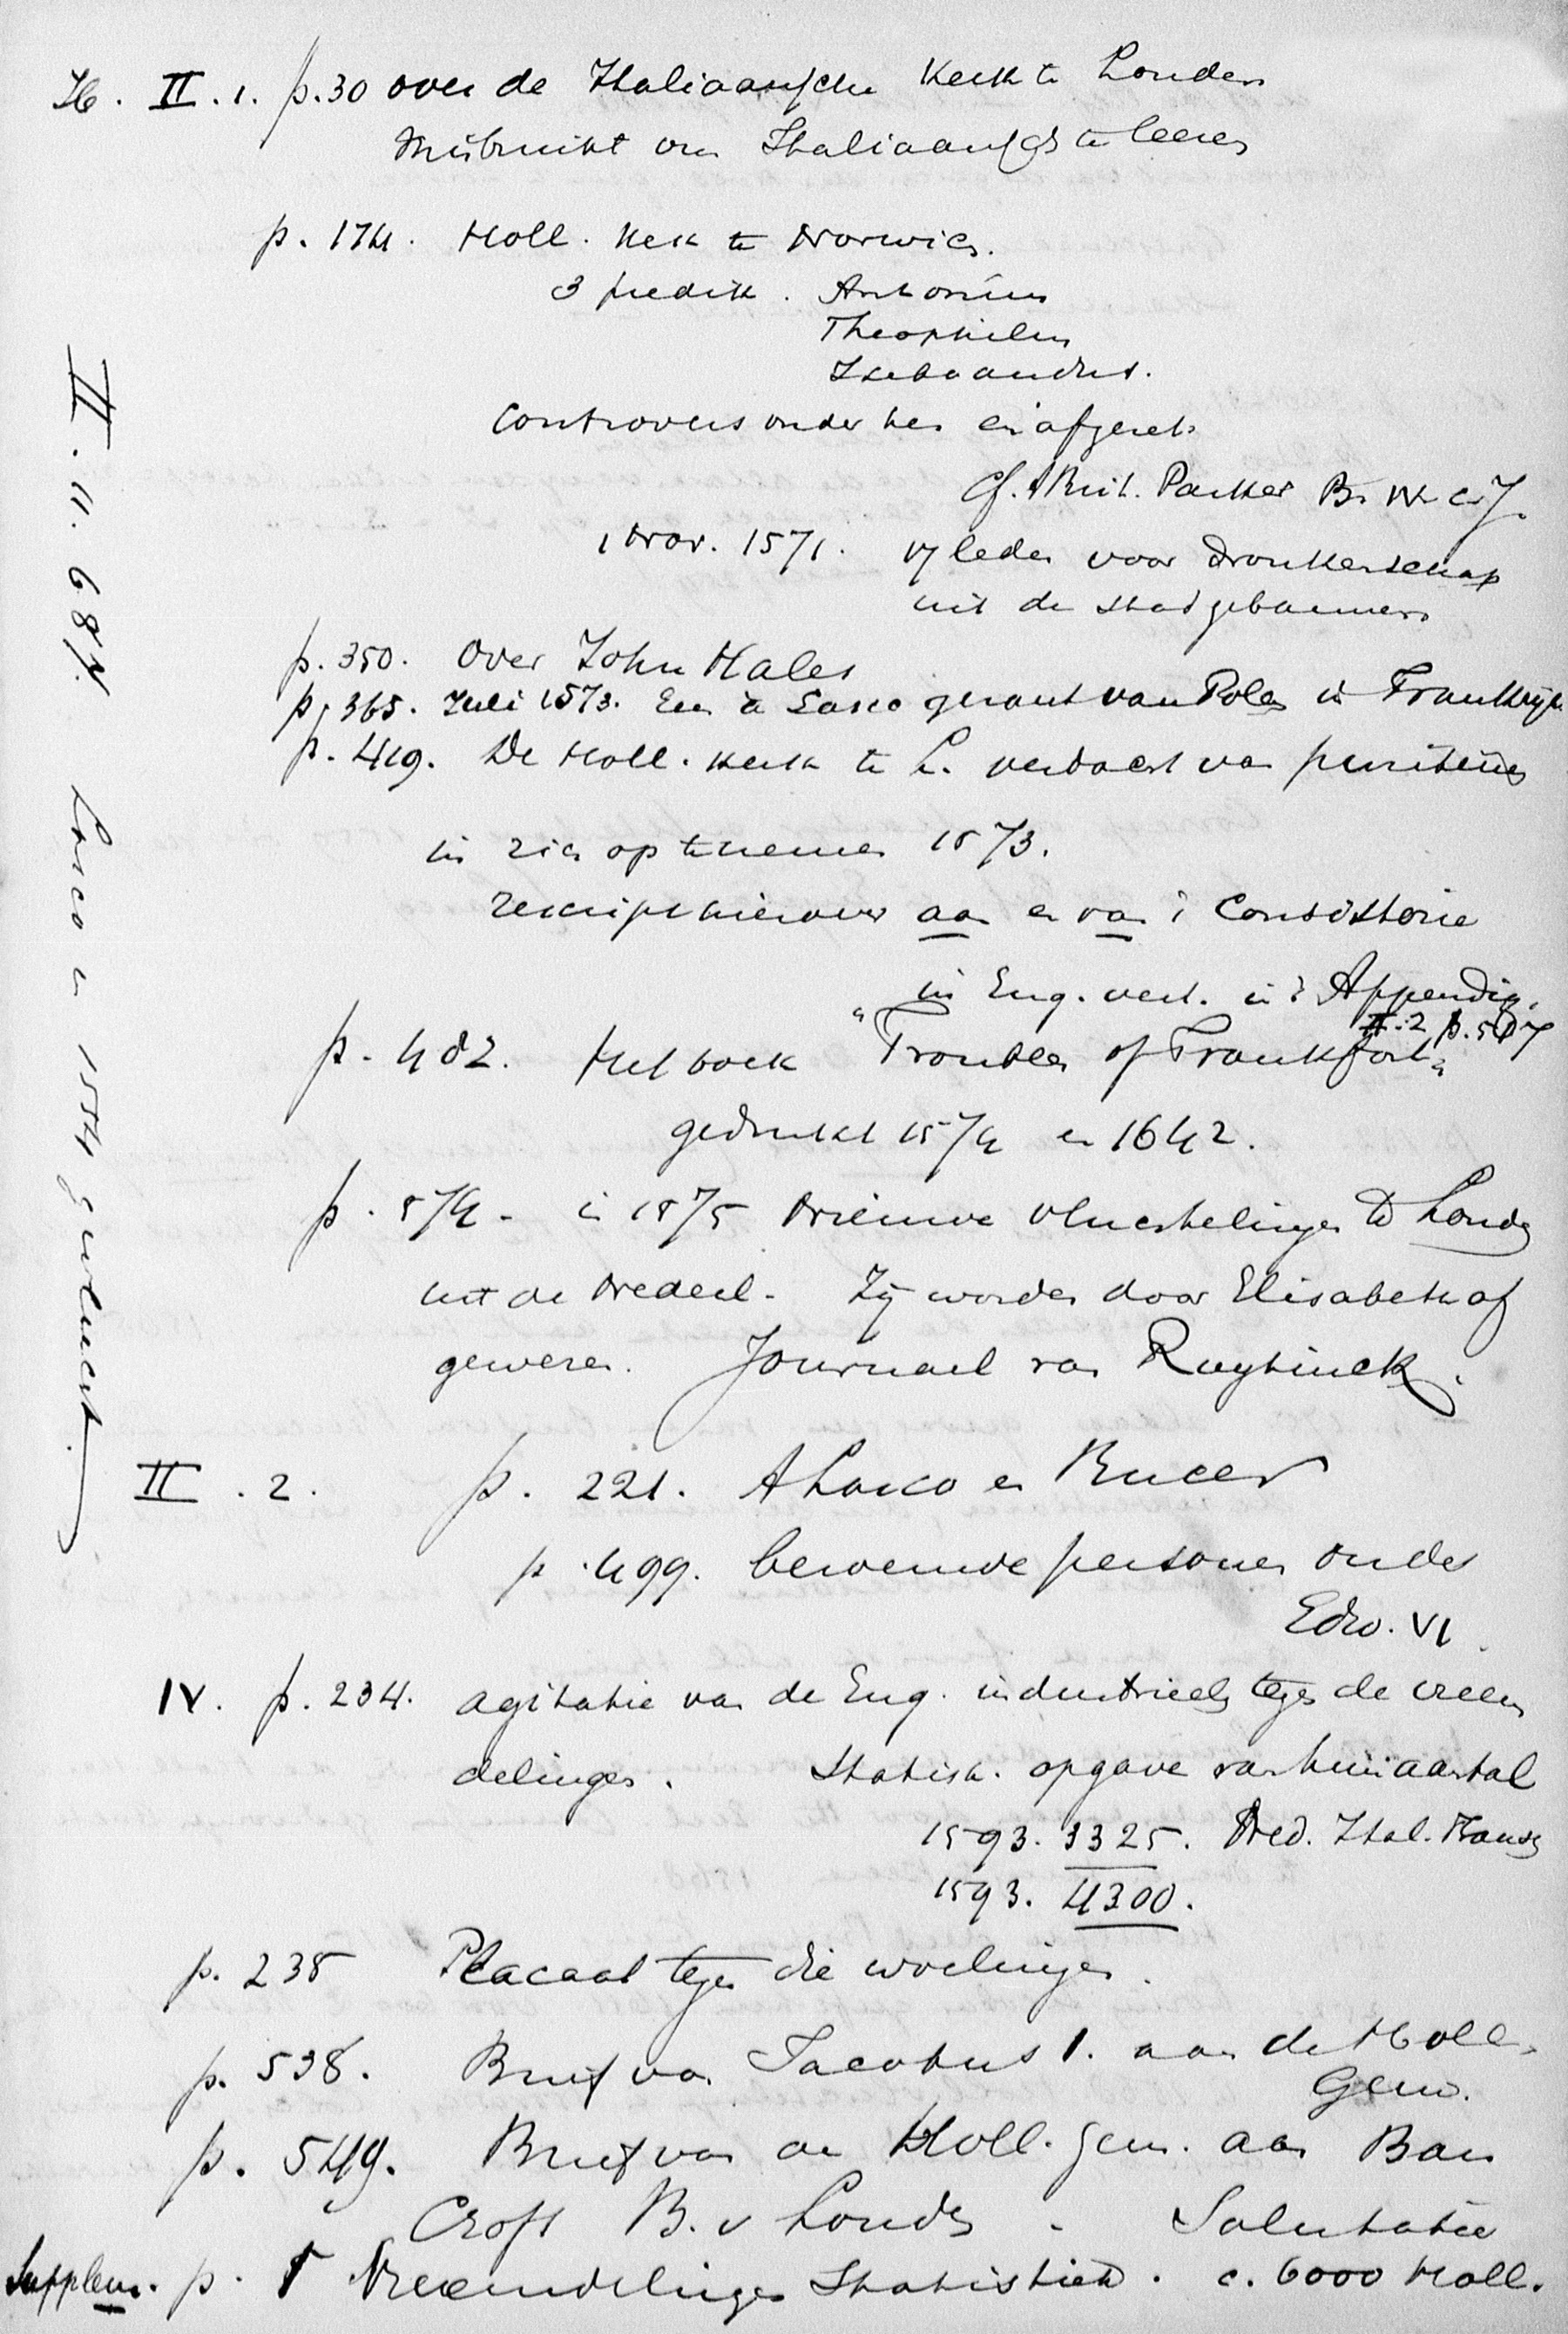 Ib. II.1. p.30 over de Italiaansche Kerk te Londen
misbruikt om Italiaansch te leeren
p. 174. Holl. Kerk te Norwich.
3 predik. Antonius
Theophilus
Isebrandus.
Controvers onder hen en afgezet.
Cf. Brit. Parker B.
1 Nov. 1571. leden voor dronkenschap
uit de stad gebannen
p. 350. Over John Hales
p. 365. Juli 1573. Een à Lasco gezant van Polen in Frankrijk
p. 419. De Holl. Kerk te L. verdacht van puriteins
in zich op te nemen 1573.
rescript hierover aan en van 't Consistorie
in Eng. vert. in 't Appendix.
II.2 p. 517
p. 482. Het boek „Troubles of Frankfort"
gedrukt 1574 en 1642.
p. 574. in 1575 Nieuwe vluchtelingen te Londen
uit de Nederl. Zij worden door Elisabeth af
gewezen. Journael van Ruytinck.
II. 2. p. 221. A Lasco en Bucer
p. 499. beroemde personen onder
Edw. VI.
IV. p. 234. agitatie van de Eng. industrieels tegen de vreem
delingen. Statist. opgave van hun aantal
1593. 3325. Ned. Ital. Fransch
1593. 4300.
p. 235 Placaat tegen die woelingen.
p. 538. Brief van Jacobus I. aan de Holl.
Gem.
p. 549. Brief van de Holl. gem. aan Ban
croft B. v Londen. Salutatie
Supplem. p. 5 Vreemdelingen Statistiek. c. 6000 Holl.
II. 11. 687. Lasco in 1554 gevlucht.